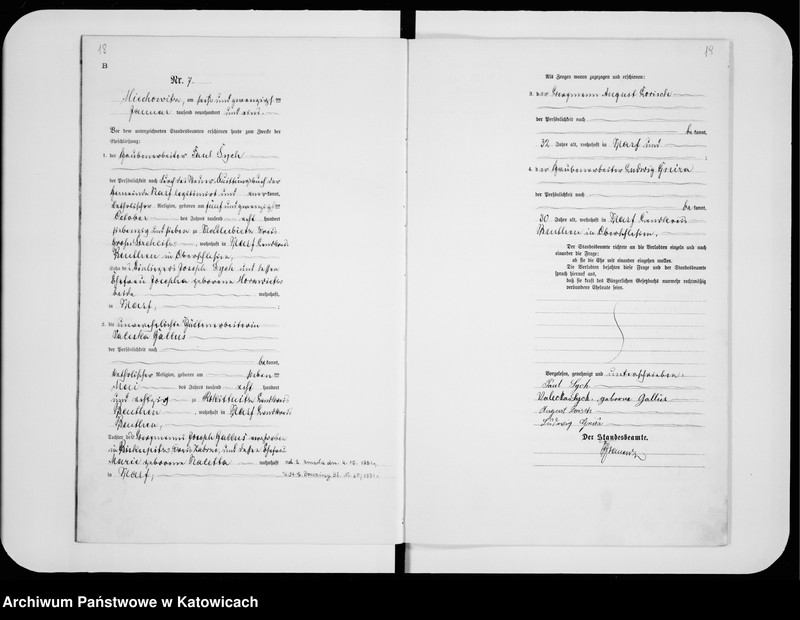 18
B
Nr. 7
Miechowitz, am sechs und zwanzigsten
Januar tausend neunhundert und
Vor dem unterzeichneten Standesbeamten erschienen heute zum Zwecke der
Eheschließung:
1. der Grubenarbeiter Paul Sych
der Persönlichkeit nach durch das
Gemeinde Karf legitimirt und kannt,
katholischer Religion, geboren am fünf und zwanzigsten
October des Jahres tausend acht hundert
siebenzig und sieben zu Kreis
Groß Strehlitz, wohnhaft in Karf Landkreis
Beuthen in Oberschlesien,
Sohn des Joseph Sych und dessen
Ehefrau Josepha geborene
beide wohnhaft
in Karf;
2. die unverehelichte Hüttenarbeiterin
Valeska Gallus
der Persönlichkeit nach
be kannt,
katholischer Religion, geboren am sieben
Mai des Jahres tausend acht hundert
und achtzig zu Rokittnitz Landkreis
Beuthen, wohnhaft in Karf Landkreis
Beuthen,
Tochter des Bergmanns Joseph Gallus
in Kreis Zabrze, und dessen Ehefrau
Marie geborene Kaletta wohnhaft
in Karf;
19
Als Zeugen waren zugezogen und erschienen:
3. der Bergmann August
der Persönlichkeit nach
be kannt,
32 Jahre alt, wohnhaft in Karf und
4. der Grubenarbeiter Ludwig
der Persönlichkeit nach
be kannt,
30 Jahre alt, wohnhaft in Karf Landkreis
Beuthen in Oberschlesien.
Der Standesbeamte richtete an die Verlobten einzeln und nach
einander die Frage:
ob sie die Ehe mit einander eingehen wollen.
Die Verlobten bejahten diese Frage und der Standesbeamte
sprach hierauf aus,
daß sie kraft des Bürgerlichen Gesetzbuchs nunmehr rechtmäßig
verbundene Eheleute seien.
Vorgelesen, genehmigt und unterschrieben:
Paul Sych
Valeska Sych, geborne Gallus
August
Ludwig
Der Standesbeamte.
Archiwum Państwowe w Katowicach